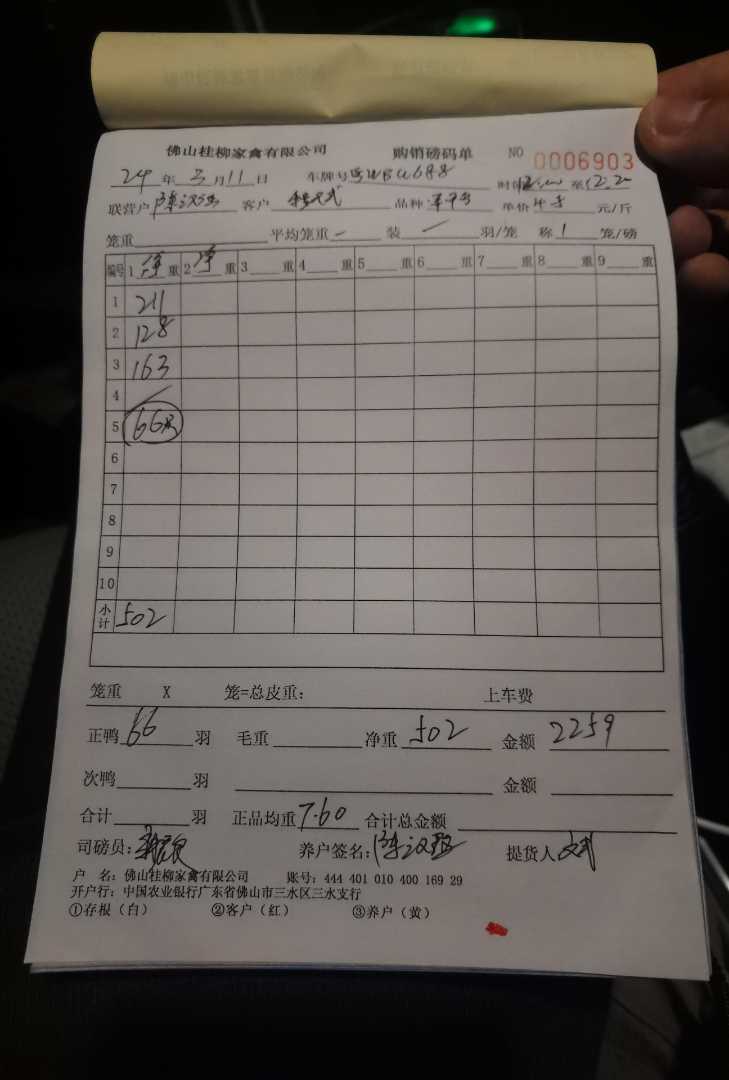 佛山桂柳家禽有限公司 购销磅码单 NO 0006903
24 年 3 月 11 日 车牌号 时间 至 12.20
联营户 客户 品种 单价 4.5 元/斤
笼重 平均笼重 — 装 — 羽/笼 称 1 笼/磅
编号 1 净 重 2 净 重 3 重 4 重 5 重 6 重 7 重 8 重 9 重
1 211
2 128
3 163
4
5 66只
6
7
8
9
10
小计 502
笼重 X 笼=总皮重: 上车费
正鸭 66 羽 毛重 净重 502 金额 2259
次鸭 羽 金额
合计 羽 正品均重 7.60 合计总金额
司磅员: 养户签名: 提货人 文武
户 名: 佛山桂柳家禽有限公司 账号: 444 401 010 400 169 29
开户行: 中国农业银行广东省佛山市三水区三水支行
①存根（白） ②客户（红） ③养户（黄）